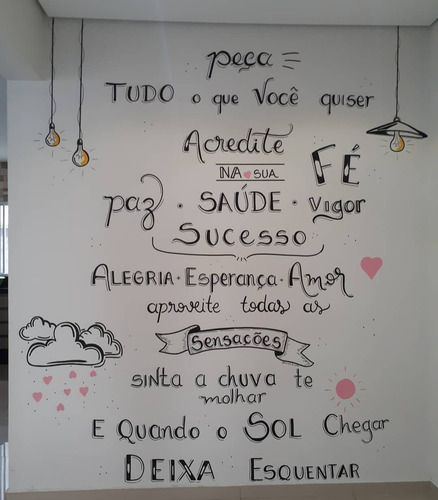 peça
TUDO o que Você quiser
Acredite
NA SUA FÉ
paz · SAÚDE · Vigor
Sucesso
ALEGRIA · Esperança · Amor
aproveite todas as
Sensações
SINTA a chuva te
molhar
E Quando o SOL Chegar
DEIXA ESQUENTAR